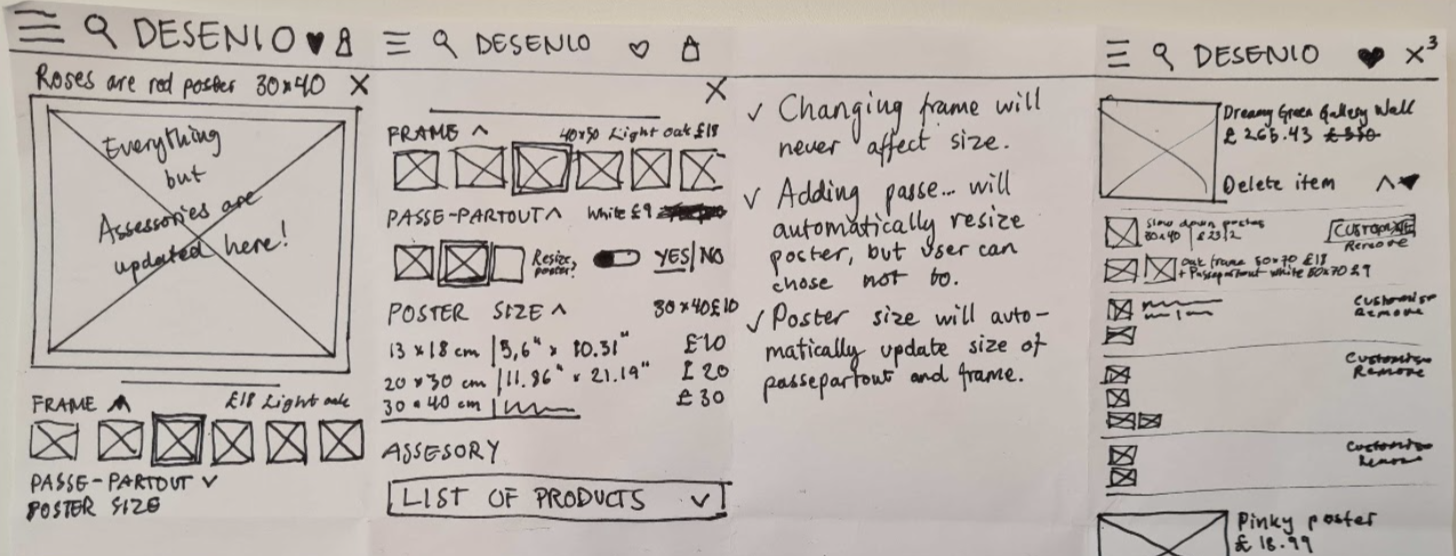 DESENIO
Roses are red poster 30x40 X
Everything
but
Assessories are
updated here!
FRAME ^ £18 Light oak
PASSE-PARTOUT v
POSTER SIZE
DESENIO
X
FRAME ^ 40x50 Light oak £18
PASSE-PARTOUT ^ White £9
Resize
poster? YES/NO
POSTER SIZE ^ 30x40 £10
13 x 18 cm | 5,6" x 10.31" £10
20 x 30 cm | 11.86" x 21.19" £ 20
30 x 40 cm | £ 30
ASSESORY
LIST OF PRODUCTS v
✓ Changing frame will
never affect size.
✓ Adding passe... will
automatically resize
poster, but user can
chose not to.
✓ Poster size will auto-
matically update size of
passepartout and frame.
DESENIO X³
Dreamy Green Gallery Wall
£265.43 £330
Delete item ^
Slow down poster CUSTOMIZE
30x40 | Remove
Oak frame 50x70 £18
+ Passepartout white 50x70 £9
Customise
Remove
Customise
Remove
Customise
Remove
Pinky poster
£ 18.99